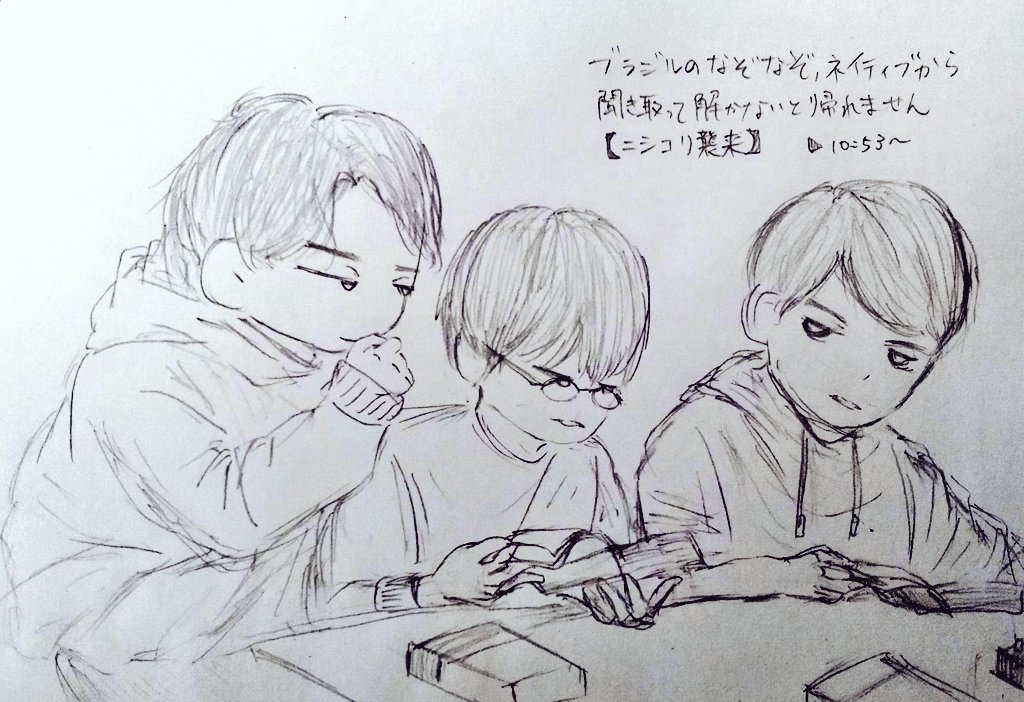 ブラジルのなぞなぞ,ネイティブから
聞き取って解かないと帰れません
【ニシコリ襲来】 ▷10:53〜